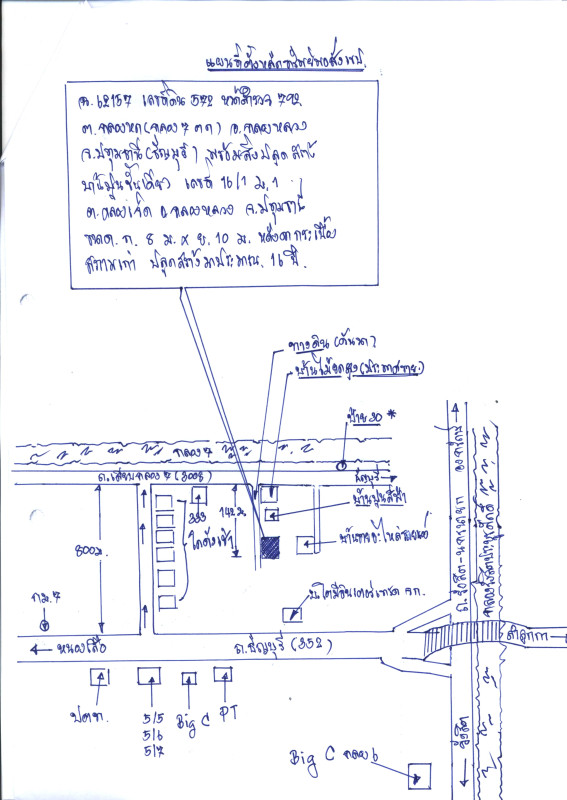 แผนที่ตั้งหลักทรัพย์พอสังเขป
ฉ. 62157 เลขที่ดิน 572 หน้าสำรวจ 792
ต.คลองหก (คลอง 7 ตก) อ.คลองหลวง
จ.ปทุมธานี (ธัญบุรี) พร้อมสิ่งปลูกสร้าง
บ้านปูนชั้นเดียว เลขที่ 16/1 ม.1
ต.คลองเจ็ด อ.คลองหลวง จ.ปทุมธานี
ขนาด ก. 8 ม. x ย. 10 ม. หลังคากระเบื้อง
สภาพเก่า ปลูกสร้างมาประมาณ 16 ปี
ทางดิน (คันนา)
บ้านไม้ยกสูง (ประกาศขาย)
ป้าย 30 *
คลอง 7
ถ.เลียบคลอง 7 (3008)
ธัญบุรี
333
142 ม.
บ้านปูนสีฟ้า
800 ม.
โกดังเช่า
กม. 7
หนองเสือ
ถ.ธัญบุรี (352)
ลำลูกกา
ถ.รังสิต-นครนายก
องครักษ์
คลองรังสิตประยูรศักดิ์
รังสิต
ปตท.
5/5
5/6
5/7
Big C
PT
Big C คลอง 6